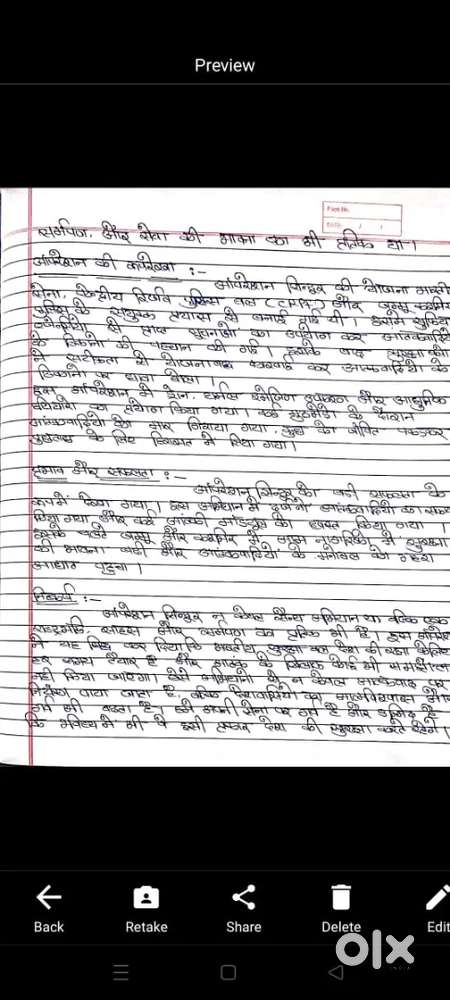 Preview
Page No.
Date / /
समर्पण, और सेवा की भावना का भी प्रतिक था।
ऑपरेशन की रूपरेखा :-
ऑपरेशन सिन्दूर की योजना भारतीय
सेना, केन्द्रीय रिजर्व पुलिस बल (CRPF) और जम्मू कश्मीर
पुलिस के संयुक्त प्रयास से बनाई गई थी। इसमें खुफिया
एजेंसियों से प्राप्त सूचनाओं का उपयोग कर आतंकवादियों
के ठिकानों की पहचान की गई। इसके बाद सुरक्षा बलों
ने सटीकता से योजनाबद्ध कर आतंकवादियों के
ठिकानों पर धावा बोला।
इस ऑपरेशन में ड्रोन, थर्मल इमेजिंग उपकरण और आधुनिक
हथियारों का प्रयोग किया गया। कई मुठभेड़ों के दौरान
आतंकवादियों को मार गिराया गया, कुछ को जीवित पकड़कर
पूछताछ के लिए हिरासत में लिया गया।
प्रभाव और सफलता :-
ऑपरेशन सिन्दूर को बड़ी सफलता के
रूप में देखा गया। इस अभियान में दर्जनों आतंकवादियों का सफाया
किया गया और कई आतंकी मॉड्यूल को ध्वस्त किया गया।
इसके चलते जम्मू और कश्मीर में आम नागरिकों में सुरक्षा
की भावना बढ़ी और आतंकवादियों के मनोबल को गहरा
आघात पहुंचा।
निष्कर्ष :-
ऑपरेशन सिन्दूर न केवल सैन्य अभियान था बल्कि एक
राष्ट्रभक्ति, साहस और समर्पण का प्रतिक भी है। इस ऑपरेशन
ने यह सिद्ध कर दिया कि भारतीय सुरक्षा बल देश की रक्षा के लिए
हर समय तैयार है और आतंक के खिलाफ कोई भी समझौता
नहीं किया जाएगा। ऐसे अभियानों से न केवल आतंकवाद पर
नियंत्रण पाया जाता है, बल्कि देशवासियों का आत्मविश्वास और
गर्व भी बढ़ता है। हमें अपनी सेना पर गर्व है और उम्मीद है
कि भविष्य में भी वे इसी तरह देश की सुरक्षा करते रहेंगे।
Back
Retake
Share
Delete
Edit
olx
INDIA